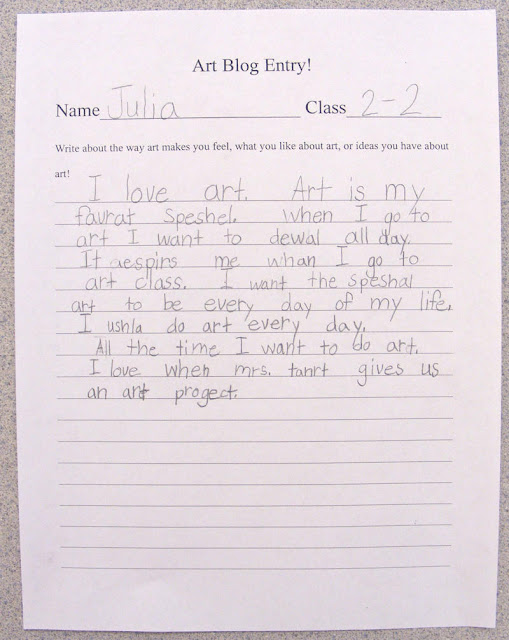 Art Blog Entry!
Name Julia Class 2-2
Write about the way art makes you feel, what you like about art, or ideas you have about
art!
I love art. Art is my
favrat speshel. When I go to
art I want to dewal all day.
It aespirs me whan I go to
art class. I want the speshal
art to be every day of my life.
I ushla do art every day.
All the time I want to do art.
I love when mrs. tanrt gives us
an art progect.